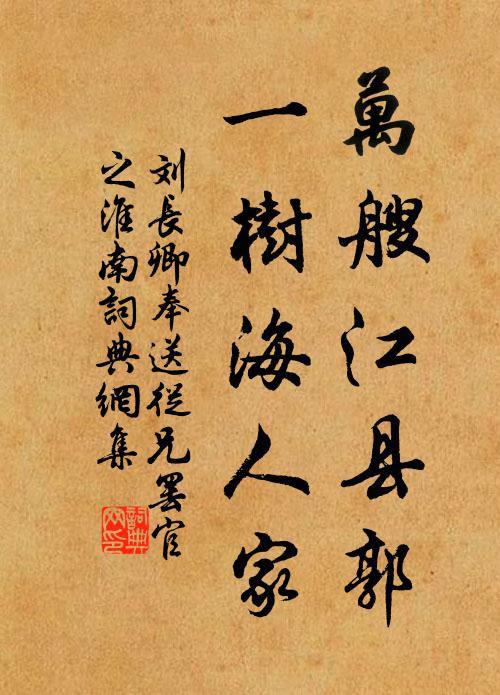 萬艘江县郭
一樹海人家
刘長卿奉送從兄罢官
之淮南詞典網集
詞典網印